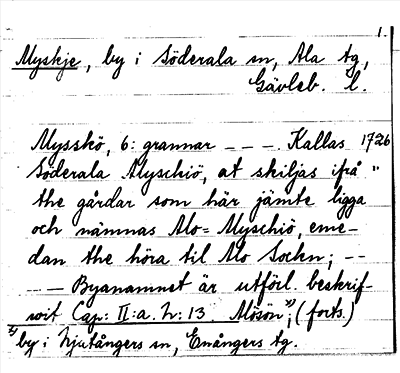 1.
Myskje, by i Söderala sn, Ala tg,
Gävleb. l.
Mysskö, 6: grannar - - - Kallas 1726
Söderala Myschiö, at skiljas ifrå "
the gårdar som här jämte ligga
och nämnas Alo=Myschiö, eme-
dan the höra til Alo Sockn; - -
- - Byanamnet är utförl. beskrif-
wit Cap: II:a. h: 13. Mösön x); (forts.)
x) by i Njutångers sn, Enångers tg.